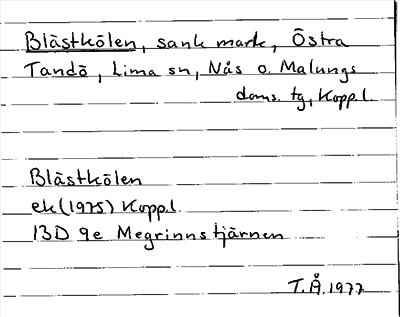 Blästkölen, sank mark, Östra
Tandö, Lima sn, Nås o. Malungs
doms. tg, Kopp.l.
Blästkölen
ek (1975) Kopp.l.
13D 9e Megrinnstjärnen
T.Å.1977